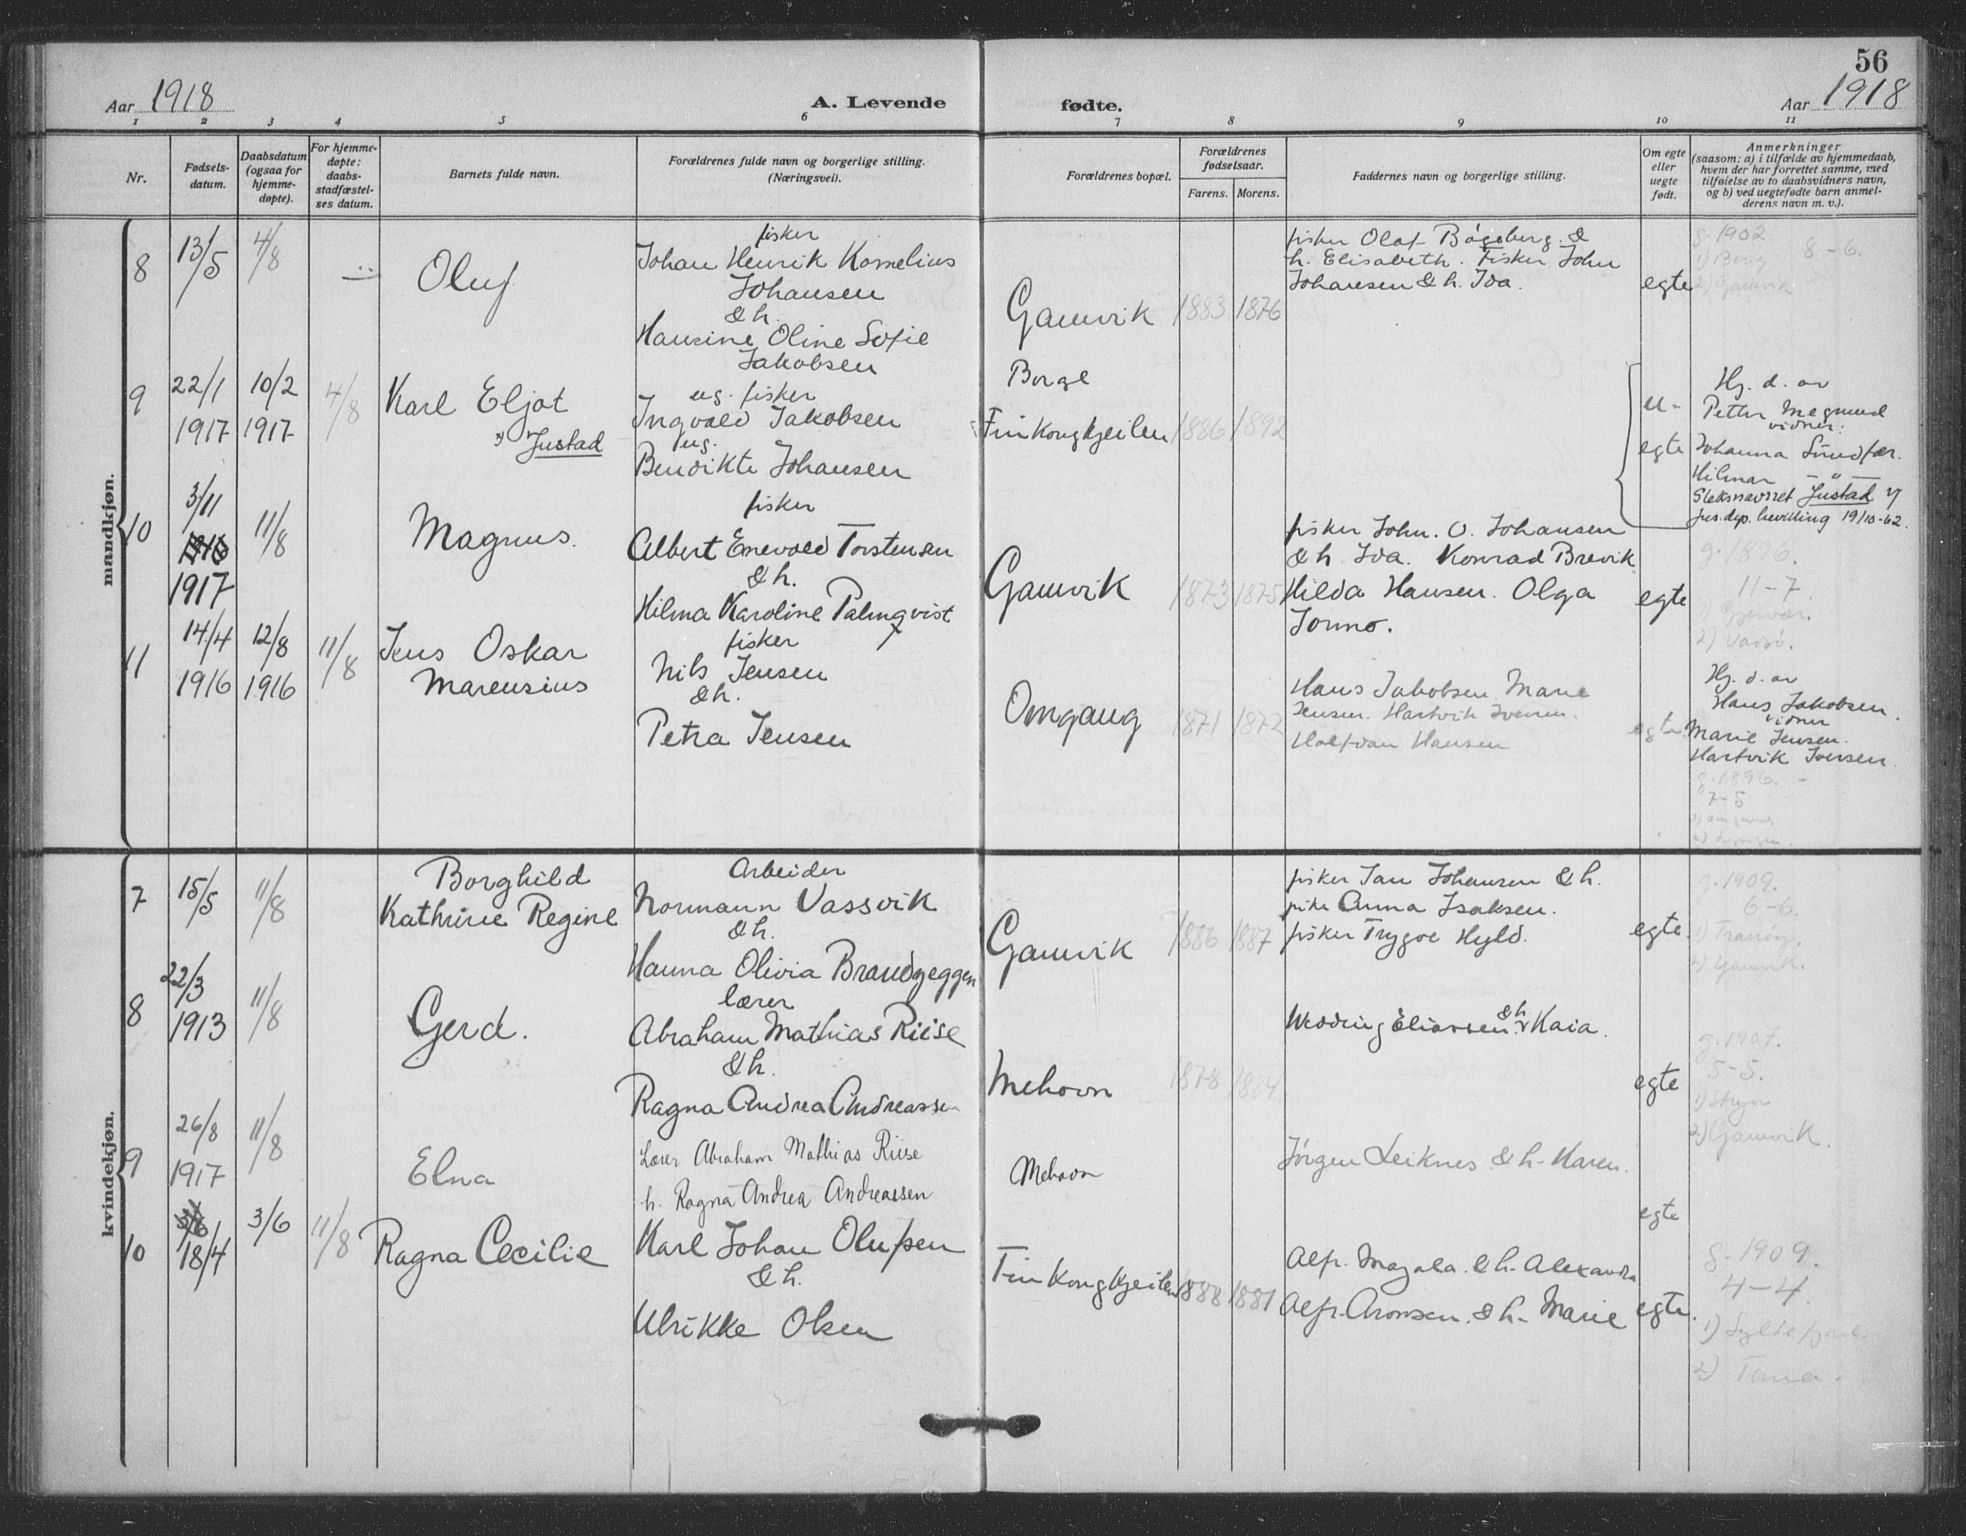 56
Aar 1918
A. Levende
fødte.
Aar 1918
1 2 3 4 5 6 7 8 9 10 11
Nr.
Fødsels-
datum.
Daabsdatum
(ogsaa for
hjemme-
døpte).
For hjemme-
døpte:
daabs-
stadfæstel-
ses datum.
Barnets fulde navn.
Forældrenes fulde navn og borgerlige stilling.
(Næringsvei).
Forældrenes bopæl.
Forældrenes
fødselsaar.
Farens.
Morens.
Faddernes navn og borgerlige stilling.
Om egte
eller
uegte
født.
Anmerkninger
(saasom: a) i tilfælde av hjemmedaab,
hvem der har forrettet samme, med
tilføielse av to daabsvidners navn,
og b) ved uegtefødte barn anmel-
derens navn m. v.).
mandkjøn.
8
13/5
4/8
Oluf
fisker
Johan Henrik Kornelius
Johansen
& h.
Hansine Oline Sofie
Jakobsen
Gamvik
1883
1876
fisker Olaf Bøgeberg &
h. Elisabeth. Fisker John
Johansen & h. Ida.
egte
g. 1902
8-6.
1) Berg
2) Gamvik
9
22/1
1917
10/2
1917
4/8
Karl Eljot
"Justad
ug. fisker
Ingvald Jakobsen
ug.
Bendikte Johansen
Borge
Finkongkjeilen
1886
1892
u-
egte
Hj. d. av
Petter Megrund
vidner:
Johanna Sundfær.
Hilmar — " —
Slektsnavnet Justad v/
jus.dep. bevilling 19/10-62.
10
3/11
1918
1917
11/8
Magnus.
fisker
Albert Enevold Torstensen
& h.
Hilma Karoline Palmqvist
Gamvik
1873
1875
fisker John. O. Johansen
& h. Ida. Konrad Brevik
Hilda Hansen. Olga
Jonno.
egte
g. 1896.
11-7.
1) Gjesvær.
2) Vadsø.
11
14/4
1916
12/8
1916
11/8
Jens Oskar
Marensius
fisker
Nils Jensen
& h.
Petra Jensen
Omgang
1871
1872
Hans Jakobsen. Marie
Jensen. Hartvik Iversen.
Halfdan Hansen
egte
Hj. d. av
Hans Jakobsen.
vidner
Marie Jensen.
Hartvik Iversen.
g. 1896.
7-5
1) Omgang
kvindekjøn.
7
15/5
11/8
Borghild
Kathrine Regine
Arbeider
Normann Vassvik
& h.
Hanna Olivia Brandgeggen
Gamvik
1886
1887
fisker Jan Johansen & h.
pike Anna Isaksen.
fisker Trygve Hyld.
egte.
g. 1909.
6-6.
1) Tranøy.
2) Gamvik.
8
22/3
1913
11/8
Gerd.
lærer
Abraham Mathias Riise
& h.
Ragna Andrea Andreassen
Mehavn
1878
1884
Wedding Eliassen & h. Kaia.
egte
g. 1907.
5-5.
1) Stryn
2) Gamvik.
9
26/8
1917
11/8
Elna
Lærer Abraham Mathias Riise
h. Ragna Andrea Andreassen
Mehavn
Jørgen Leiknes & h. Karen.
egte
10
3/6
18/4
3/6
11/8
Ragna Cecilie
Karl Johan Olufsen
& h.
Ulrikke Olsen
Finkongkjeilen
1888
1881
Alfr. Magala. & h. Alexandra
Alfr. Aronsen. & h. Marie
egte.
g. 1909.
4-4.
1) Syltefjord.
2) Tana.